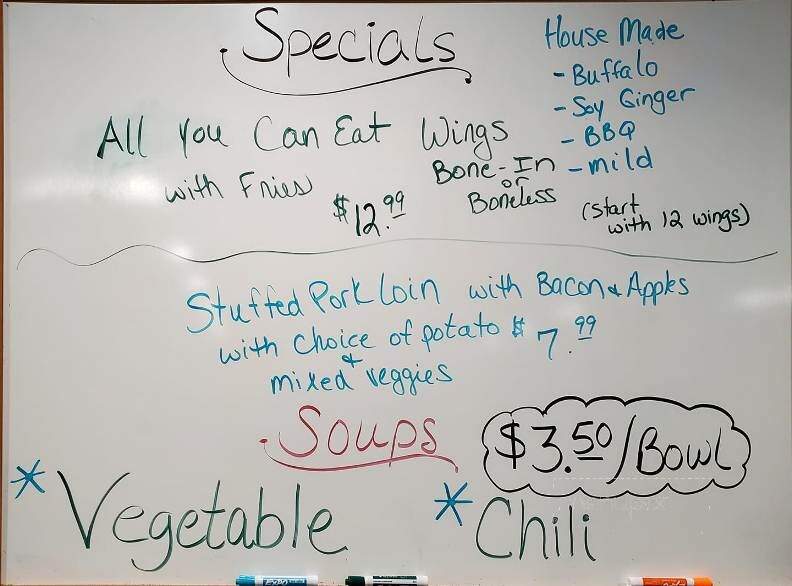 Specials
All You Can Eat Wings
with Fries
$12.99
Bone-In
or
Boneless
House Made
- Buffalo
- Soy Ginger
- BBQ
- mild
(start
with 12 wings)
Stuffed Pork Loin with Bacon & Apples
with choice of potato $7.99
&
mixed veggies
Soups
$3.50/Bowl
* Vegetable
* Chili
EXPO